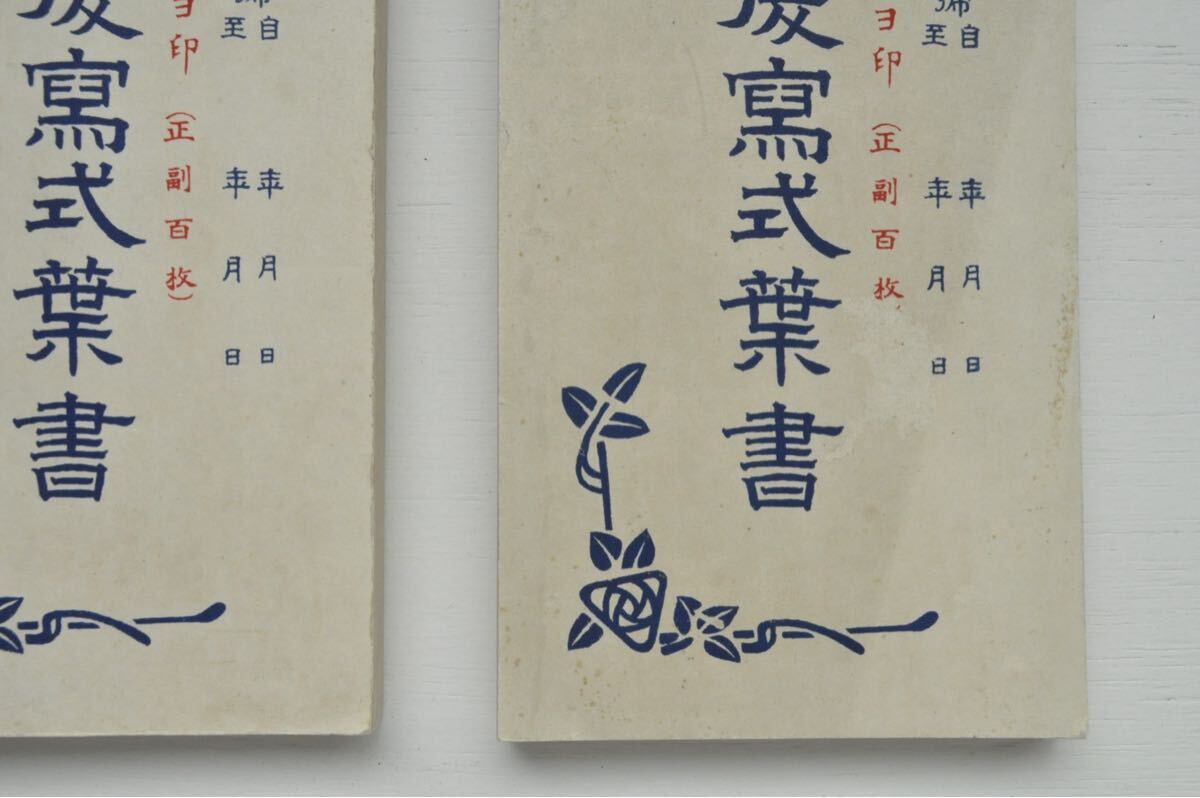 自 年 月 日
至 年 月 日
ヨ印（正副百枚
寫式葉書
自 年 月 日
至 年 月 日
ヨ印（正副百枚）
寫式葉書